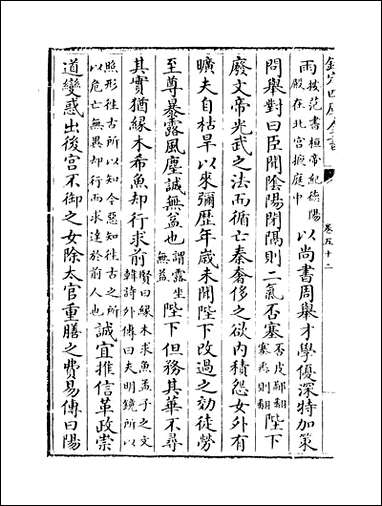 欽定四庫全書
卷五十二
雨按范書桓帝紀徳陽殿在北宫掖庭中以尚書周舉才學優深特加策
問舉對曰臣聞陰陽閉隔則二氣否塞否皮鄙翻塞悉則翻陛下
廢文帝光武之法而循亡秦奢侈之欲内積怨女外有
曠夫自枯旱以來彌歴年歳未聞陛下改過之効徒勞
至尊暴露風塵誠無益也謂露坐無益陛下但務其華不尋
其實猶縁木希魚却行求前賢曰縁木求魚孟子之文韓詩外傳曰夫明鏡所以
照形往古所以知今惡知往古之所以危亡無異却行而求逹於前人也誠宜推信革政崇
道變惑出後宫不御之女除太官重膳之費易傳曰陽